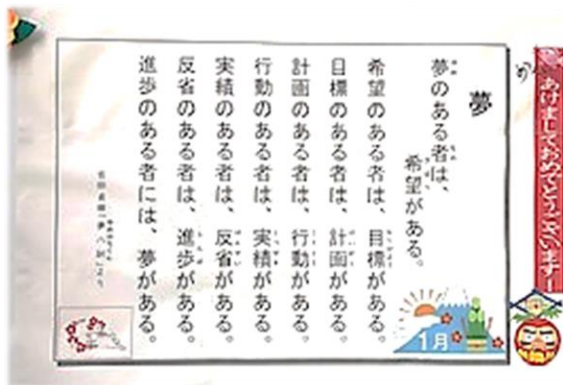 あけましておめでとうございます!
夢
夢のある者は、
希望がある。
希望のある者は、目標がある。
目標のある者は、計画がある。
計画のある者は、行動がある。
行動のある者は、実績がある。
実績のある者は、反省がある。
反省のある者は、進歩がある。
進歩のある者には、夢がある。
より
1月